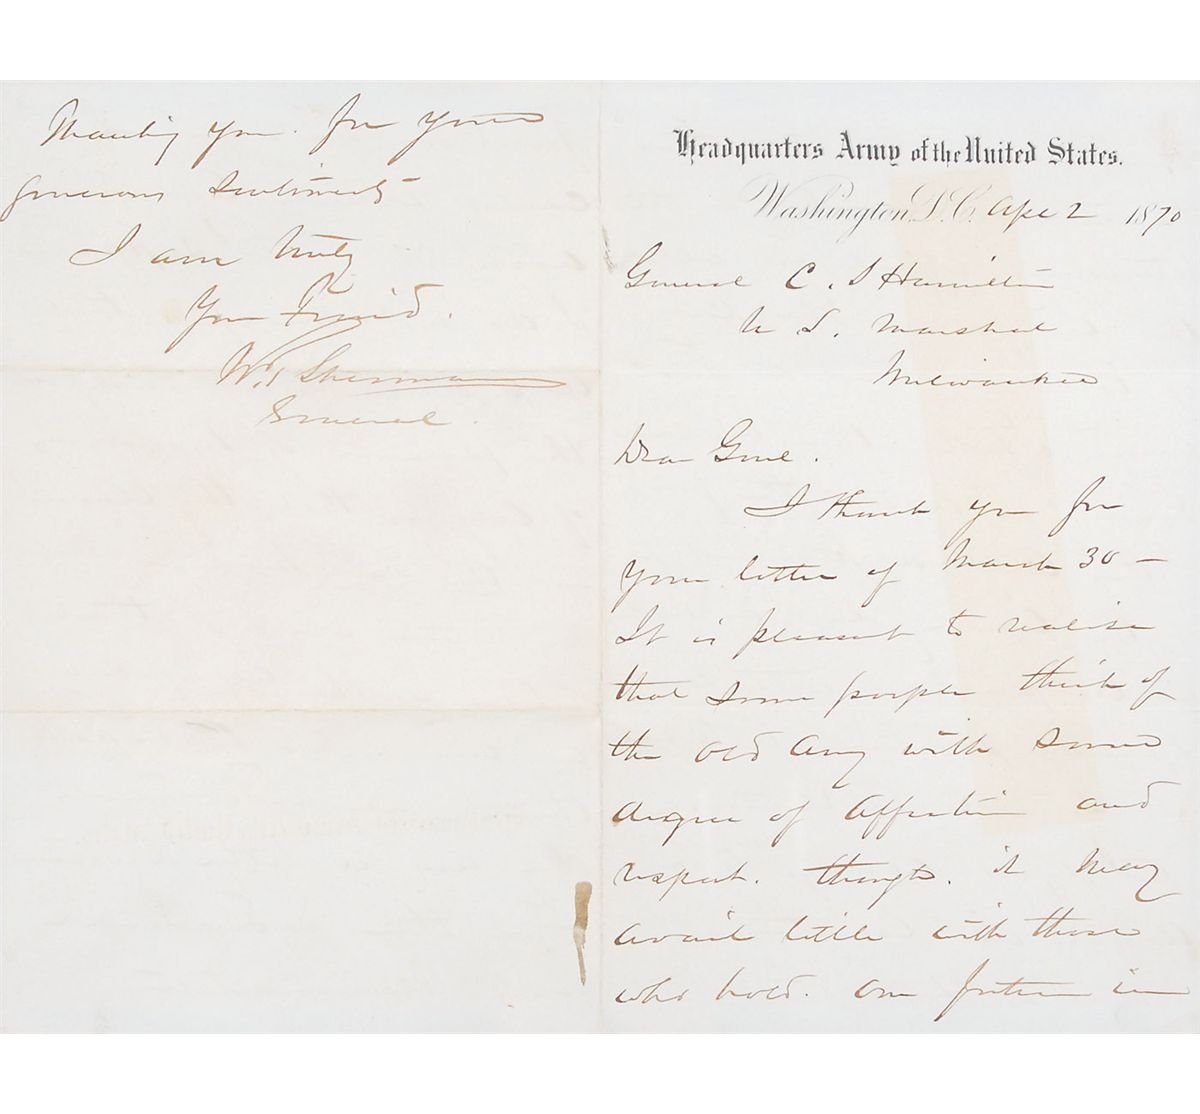 Headquarters Army of the United States.
Washington, D.C. Apl 2 1870
General C. S Hamilton
U S. Marshal
Milwaukee
Dear Genl.
I thank you for
your letter of March 30 —
It is pleasant to realise
that some people think of
the old Army with some
degree of affection and
respect. though. it may
avail little with those
who hold. our future in
Thanking you. for your
generous sentiments
I am truly
Your Friend.
W. T. Sherman
General.